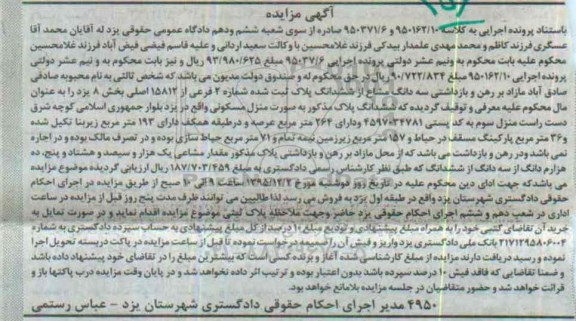 آگهی مزایده
باستناد پرونده اجرایی به کلاسه ۹۵۰۱۶۲/۱۰ و ۹۵۰۳۷۱/۶ صادره از سوی شعبه ششم ودهم دادگاه عمومی حقوقی یزد له آقایان محمد آقا
عسگری فرزند کاظم و محمد مهدی علمدار بیدکی فرزند غلامحسین با وکالت سعید اردانی و علیه قاسم فیضی فیض آباد فرزند غلامحسین
محکوم علیه بابت محکوم به ونیم عشر دولتی پرونده اجرایی ۹۵۰۳۷/۶ مبلغ ۹۳/۹۸۰/۶۲۵ ریال و نیز بابت محکوم به و نیم عشر دولتی
پرونده اجرایی ۹۵۰۱۶۲/۱۰ مبلغ ۹۰/۷۲۲/۸۳۴ ریال در حق محکوم له و صندوق دولت مدیون می باشد که شخص ثالثی به نام محبوبه صادقی
صادق آباد مازاد بر رهن و بازداشتی سه دانگ مشاع از ششدانگ پلاک ثبت شده شماره ۲ فرعی از ۱۵۸۱۲ اصلی بخش ۸ یزد را به عنوان
مال محکوم علیه معرفی و توقیف گردیده که ششدانگ پلاک مذکور به صورت منزل مسکونی واقع در یزد بلوار جمهوری اسلامی کوچه شرق
دست راست منزل سوم به کد پستی ۴۵۹۷۰۳۴۷۸۱ ودارای ۲۶۴ متر مربع عرصه و درطبقه همکف دارای ۱۹۳ متر مربع زیربنا تکیل شده
و۳۶ متر مربع پارکینگ مسقف در حیاط و ۱۵۷ متر مربع زیرزمین نیمه تمام و ۷۱ متر مربع حیاط سازی بوده و در تصرف مالک بوده و در اجاره
نمی باشد ودر رهن و بازداشت می باشد که از محل مازاد بر رهن و بازداشتی پلاک مذکور مقدار مشاعی یک هزار و سیصد و هشتاد و پنج، ده
هزارم دانگ از سه دانگ از ششدانگ که طبق نظر کارشناس رسمی دادگستری به مبلغ ۱۸۷/۷۰۳/۴۵۹ ریال ارزیابی گردیده موضوع مزایده
می باشدکه جهت ادای دین محکوم علیه در تاریخ روز دوشنبه مورخ ۱۳۹۵/۱۲/۲ ساعت ۹ الی ۱۰ صبح از طریق مزایده در اجرای احکام
حقوقی دادگستری شهرستان یزد واقع در طبقه اول یزد به فروش می رسد لذا طالبین می توانند ظرف مدت پنج روز قبل از مزایده در ساعت
اداری در شعب دهم و ششم اجرای احکام حقوقی یزد حاضر وجهت ملاحظه پلاک ثبتی موضوع مزایده اقدام نماید و در صورت تمایل به
خرید آن تقاضای کتبی خود را به همراه مبلغ پیشنهادی و تودیع مبلغ ۱۰ درصد از کل مبلغ پیشنهادی به حساب سپرده دادگستری به شماره
۲۱۷۱۲۹۵۸۰۶۰۰۴ بانک ملی دادگستری یزد واریز و فیش آن را ضمیمه درخواست نموده تا قبل از ساعت مزایده در پاکت دربسته تحویل اجرا
نموده و رسید دریافت دارند مزایده از مبلغ کارشناسی شده آغاز و برنده کسی است که بیشترین مبلغ را در تقاضای خود پیشنهاد داده باشد
و ضمنا تقاضایی که فاقد فیش ۱۰ درصد سپرده باشد بدون اعتبار بوده و ترتیب اثر داده نخواهد شد و در پایان وقت مزایده درب پاکتها باز و
قرائت خواهد شد و حضور متقاضیان در جلسه مزایده بلامانع خواهد بود.
۴۹۵۰ مدیر اجرای احکام حقوقی دادگستری شهرستان یزد - عباس رستمی